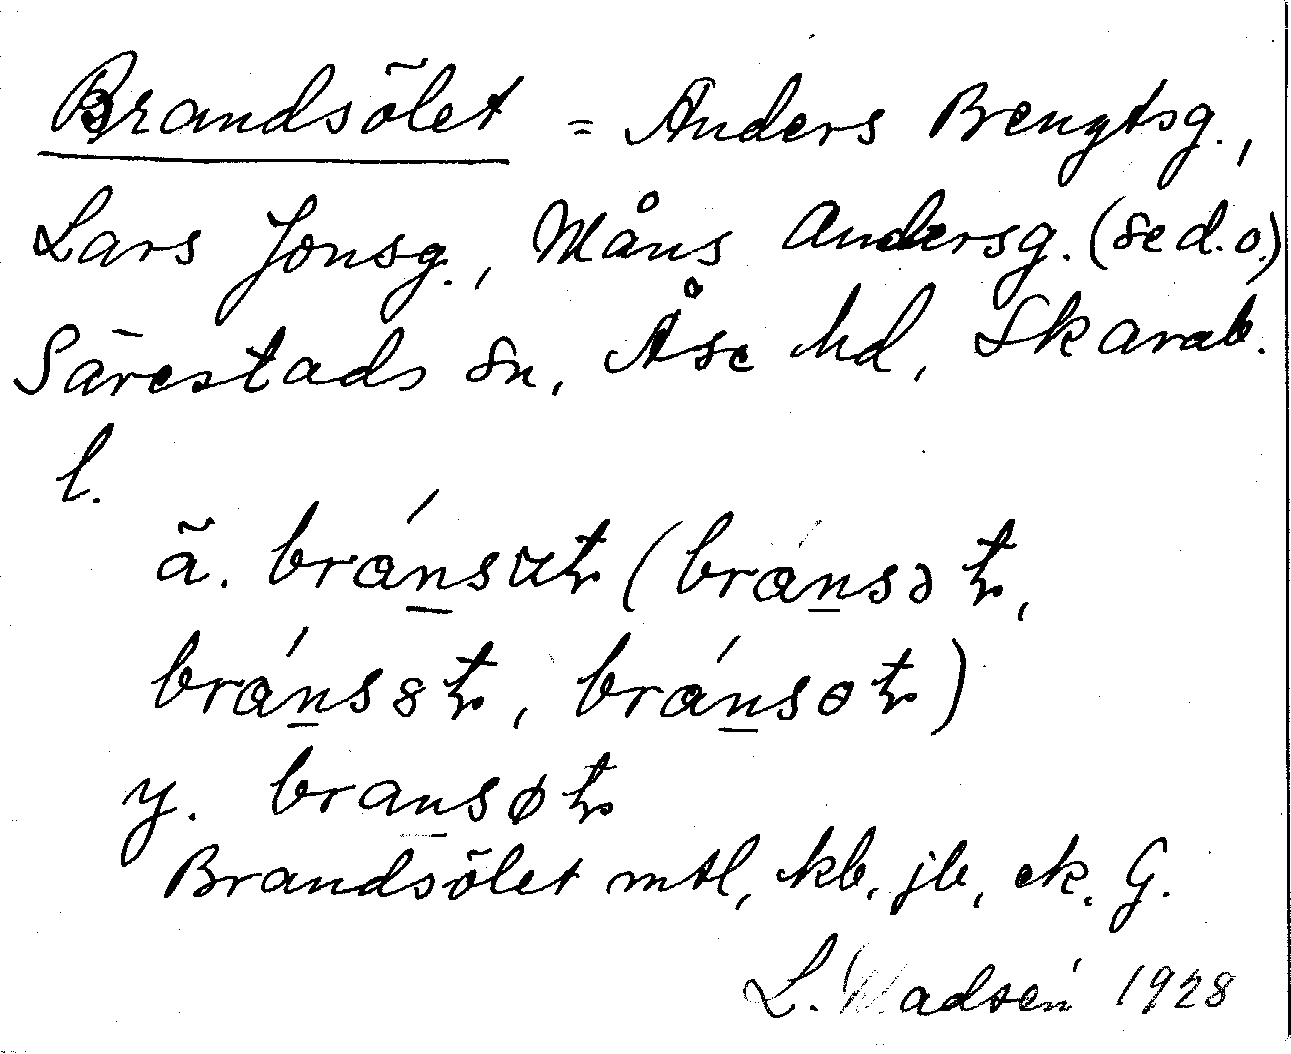 Brandsölet = Anders Bengtsg.,
Lars Jonsg., Måns Andersg. (se d. o.)
Särestads sn, Åse hd, Skarab.
l.
ä. bránsut (bránsət,
bráns8t, bránsɵt)
y. bransøt
Brandsölet mtl, kb. jb, ek. G.
L. Wadsén 1928